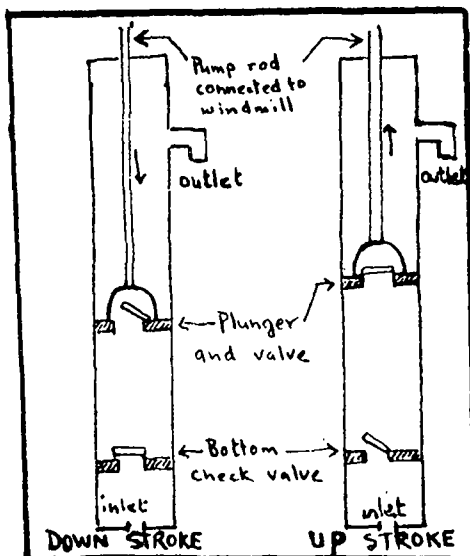 Pump rod
connected to
windmill
outlet
outlet
Plunger
and valve
Bottom
check valve
inlet
inlet
DOWN STROKE
UP STROKE